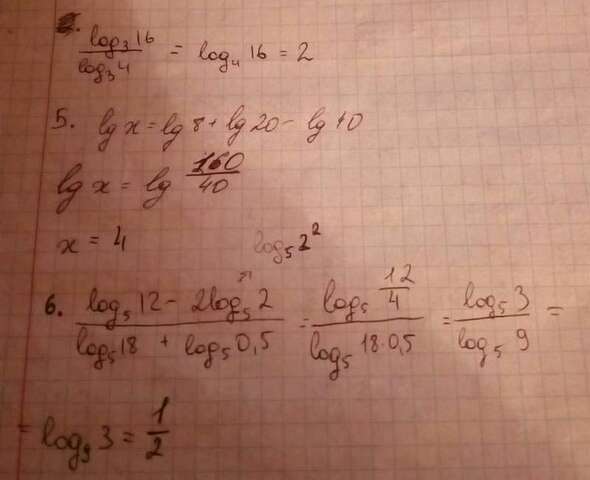 log₃16 / log₃4 = log₄ 16 = 2
5. lg x = lg 8 + lg 20 − lg 40
lg x = lg 160/40
x = 4 log₅2²
6. (log₅12 − 2log₅2) / (log₅18 + log₅0,5) = (log₅ 12/4) / (log₅ 18·0,5) = log₅3 / log₅9 =
= log₉ 3 = 1/2